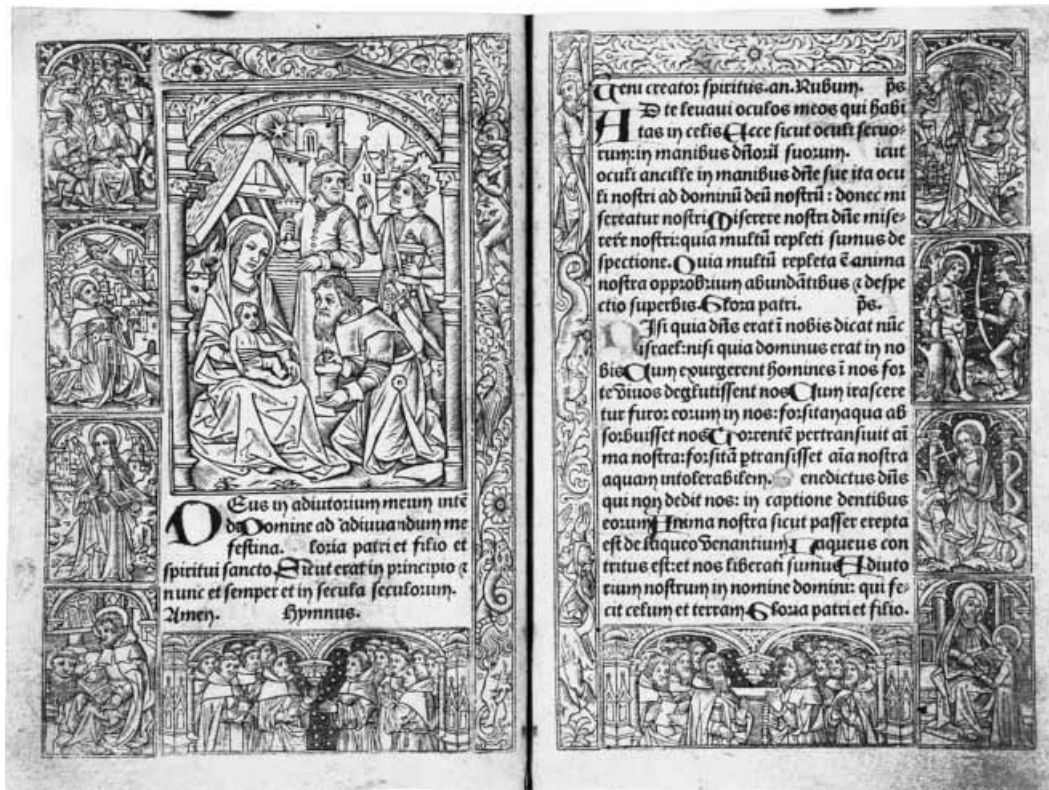 DEus in adiutorium meum intē
de Domine ad adiuuandum me
festina. loria patri et filio et
spiritui sancto Sicut erat in principio ⁊
nunc et semper et in secula seculorum.
Amen. Hymnus.
Ueni creator spiritus. an. Rubum. p̄s
AD te leuaui oculos meos qui habi
tas in celis Ecce sicut oculi seruo-
rum: in manibus dn̄orū suorum. icut
oculi ancille in manibus dn̄e sue ita ocu
li nostri ad dominū deū nostrū: donec mi
sereatur nostri Miserere nostri dn̄e mise-
rere nostri: quia multū repleti sumus de
spectione. Quia multū repleta ē anima
nostra opprobrium abundātibus ⁊ despe
ctio superbis Gloria patri. p̄s.
Nisi quia dn̄s erat ī nobis dicat nūc
israel: nisi quia dominus erat in no
bis Cum exurgerent homines ī nos for
te viuos deglutissent nos Cum irascere
tur furor eorum in nos: forsitan aqua ab
sorbuisset nos Torrentē pertransiuit ai
ma nostra: forsitā ꝑtransisset aīa nostra
aquam intolerabilem. enedictus dn̄s
qui non dedit nos: in captione dentibus
eorum Anima nostra sicut passer erepta
est de laqueo venantium Laqueus con
tritus est: et nos liberati sumus Adiuto
rium nostrum in nomine domini: qui fe-
cit celum et terram Gloria patri et filio.